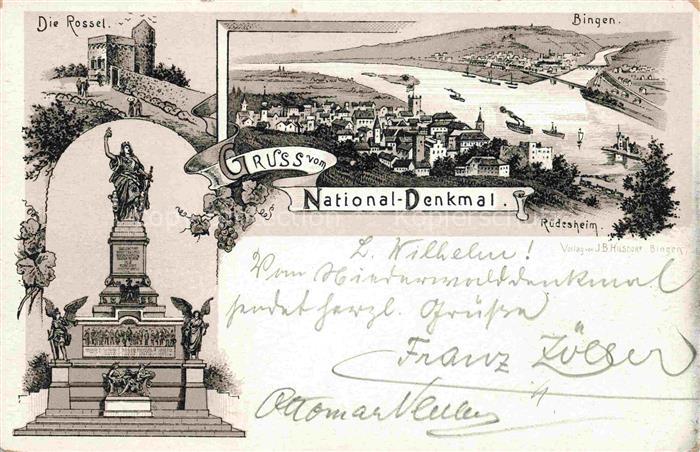 Die Rossel.
Bingen.
Gruss vom
National-Denkmal.
Rüdesheim.
Verlag von J.B. Hilsdorf Bingen
L. Wilhelm!
Vom Niederwalddenkmal
sendet herzl. Grüße
Franz
Ottomar